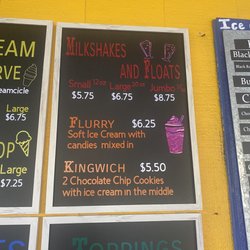 EAM
RVE
amcicle
Large
$6.75
OP
Large
$7.25
MILKSHAKES
AND FLOATS
Small 12oz Large 20oz Jumbo
$5.75 $6.75 $8.75
FLURRY $6.25
Soft Ice Cream with
candies mixed in
KINGWICH $5.50
2 Chocolate Chip Cookies
with ice cream in the middle
TOPPINGS
Ice
Black